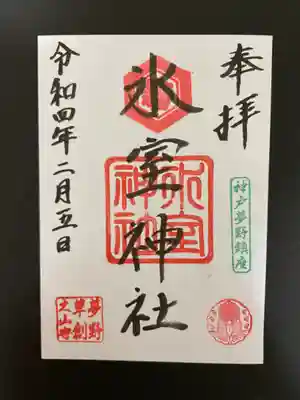 奉拝
神戸夢野鎮座
氷室神社
氷室
神社
令和四年二月五日
夢野
草創
之山守